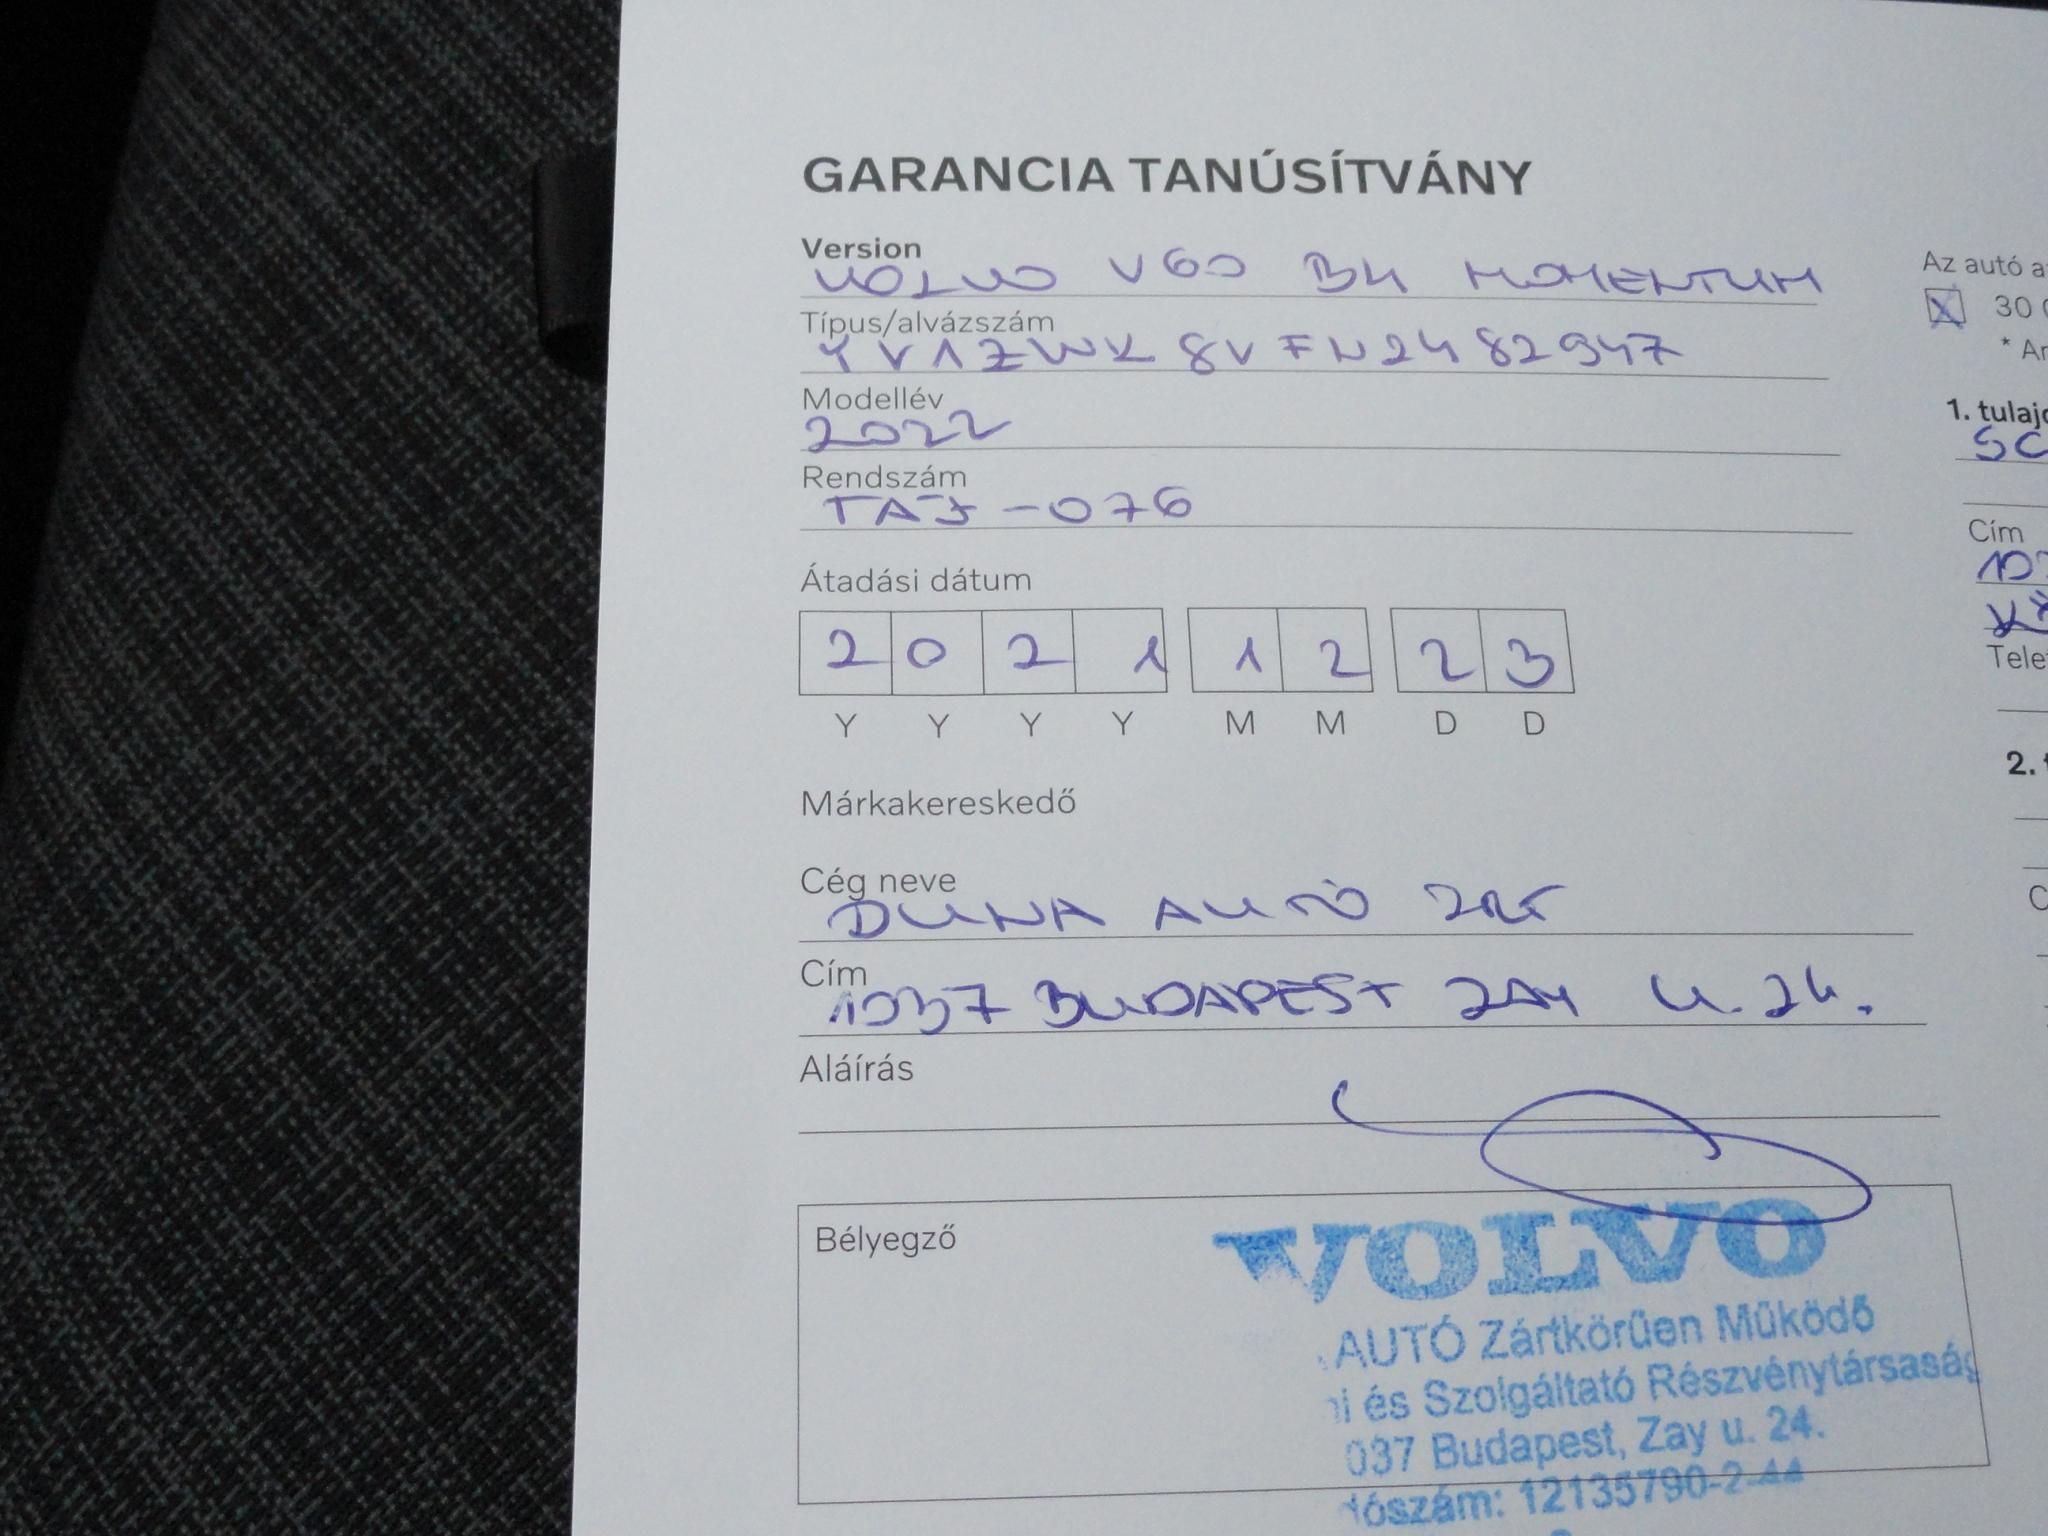 GARANCIA TANÚSÍTVÁNY
Version
VOLVO V60 B4 MOMENTUM
Típus/alvázszám
YV1ZWK8VFN2482947
Modellév
2022
Rendszám
TAJ-076
Átadási dátum
2 0 2 1 1 2 2 3
Y Y Y Y M M D D
Márkakereskedő
Cég neve
DUNA AUTÓ ZRT
Cím
1037 BUDAPEST ZAY U. 24.
Aláírás
Bélyegző
VOLVO
AUTÓ Zártkörűen Működő
és Szolgáltató Részvénytársaság
037 Budapest, Zay u. 24.
12135790-2-44
Az autó a
X 30
* Ar
1. tulajd
SC
Cím
10
Tele
2.